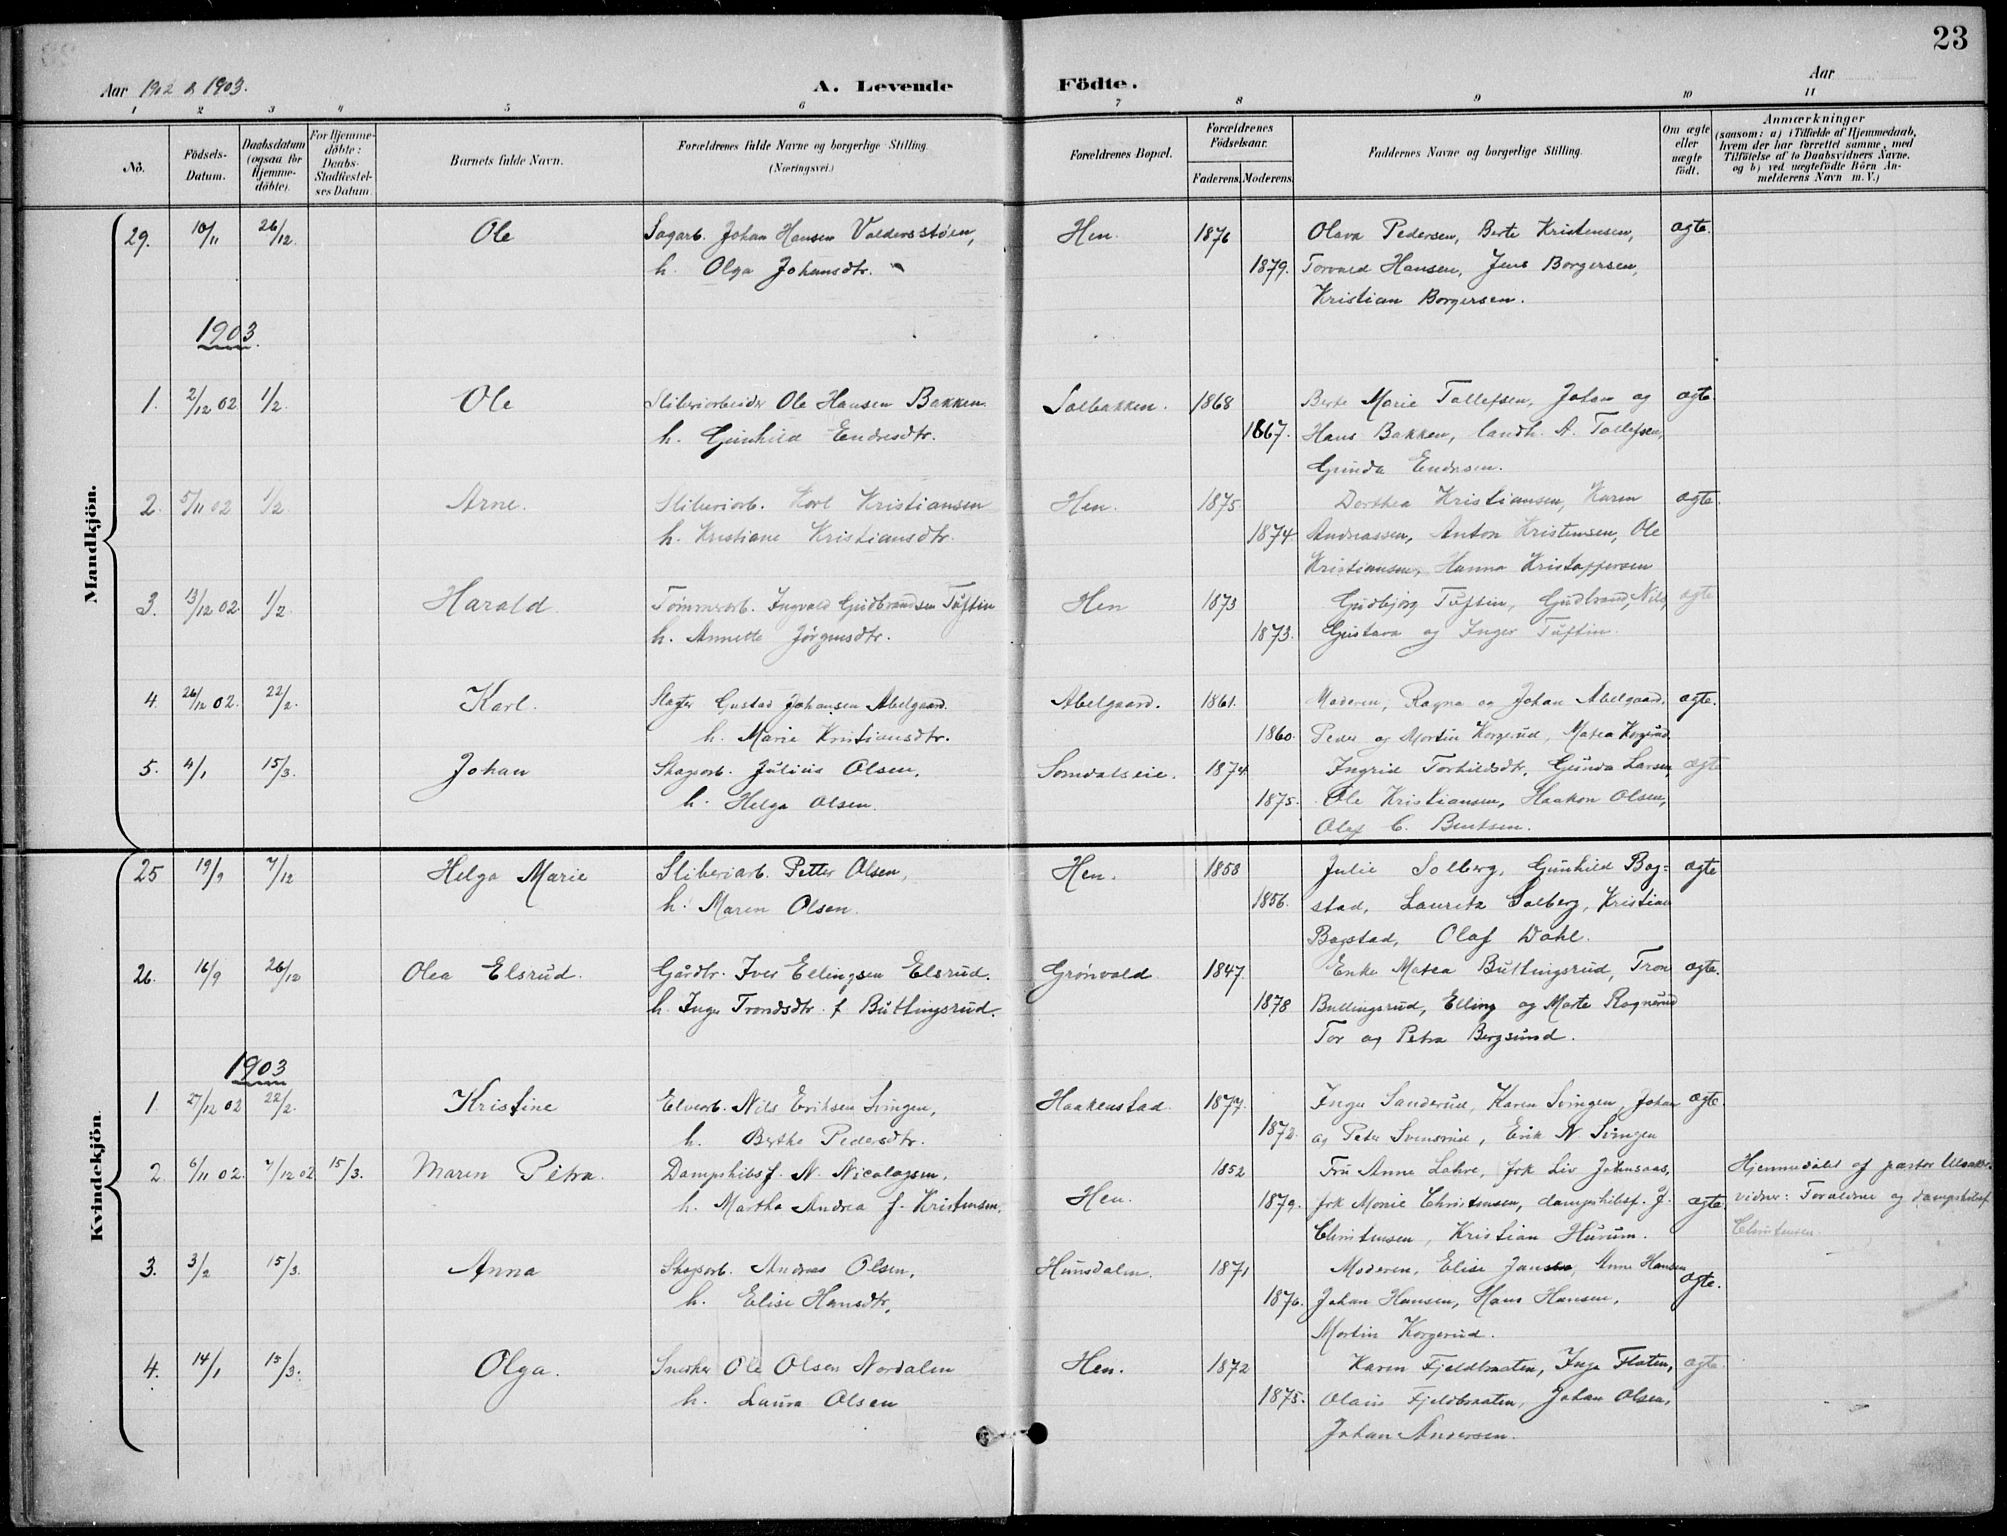 23
Aar 1902 & 1903.
A. Levende
Födte.
Aar
1 2 3 4 5 6 7 8 9 10 11
No.
Födsels-Datum.
Daabsdatum (ogsaa for Hjemme-döbte).
For Hjemme-döbte: Daabs-Stadfæstel-ses Datum.
Barnets fulde Navn.
Forældrenes fulde Navne og borgerlige Stilling. (Næringsvei.)
Forældrenes Bopæl.
Forældrenes Födselsaar.
Faderens. Moderens.
Faddernes Navne og borgerlige Stilling.
Om ægte eller uægte födt.
Anmærkninger
(saasom: a) i Tilfælde af Hjemmedaab, hvem der har forrettet samme, med Tilföielse af to Daabsvidners Navne, og b) ved uægtefödte Börn An-melderens Navn m. V.)
Mandkjön.
29. 10/11 26/12. Ole Sagarb. Johan Hansen Valdersstøen, Hen. 1876 Olava Pedersen, Berte Kristensen, ægte.
h. Olga Johansdtr. 1879. Torvald Hansen, Jens Borgersen,
Kristian Borgersen.
1903.
1. 2/12 02 1/2. Ole Sliberiarbeider Ole Hansen Bakken Solbakken. 1868 Berte Marie Tollefsen, Johan og ægte
h. Gunhild Endresdtr. 1867. Hans Bakken, landh. A. Tollefsen,
Gunda Endresen.
2. 5/11 02 1/2 Arne. Sliberiarb. Karl Kristiansen Hen. 1875 Dorthea Kristiansen, Karen ægte.
h. Kristiane Kristiansdtr. 1874. Andreassen, Anton Kristensen, Ole
Kristiansen, Hanna Kristoffersen
3. 13/12 02. 1/2. Harald Tømmerarb. Ingvald Gudbrandsen Tuftin Hen 1873 Gudbjørg Tuftin, Gudbrand, Nils, ægte
h. Annette Jørgensdtr. 1873. Gustava og Inger Tuftin.
4. 26/12 02. 22/2. Karl. Slagter Gustad Johansen Abelgaard. Abelgaard. 1861. Moderen, Ragna og Johan Abelgaard. ægte.
h. Marie Kristiansdtr. 1860. Peder og Martin Korgerud, Matea Korgerud
5. 4/1 15/3. Johan Skogsarb. Julius Olsen, Somdalseie. 1874. Ingrid Torhildsdtr, Gunda Larsen, ægte
h. Helga Olsen. 1875. Ole Kristiansen, Haakon Olsen,
Olaf C. Bentsen.
Kvindekjön.
25 19/9 7/12 Helga Marie Sliberiarb. Petter Olsen, Hen. 1858 Julie Solberg, Gunhild Bag- ægte
h. Maren Olsen. 1856. stad, Lauritz Solberg, Kristian
Bagstad, Olaf Dahl.
26. 16/9 26/12 Olea Elsrud. Gårdbr. Iver Ellingsen Elsrud. Grönvold 1847. Enke Matea Buttingsrud, Tron ægte.
h. Inga Trondsdtr. f Buttingsrud. 1878 Buttingsrud, Elling og Marte Rognerud
Tor og Petra Bergsund.
1903
1. 27/12 02 22/2. Kristine Elvearb. Nils Eriksen Svingen, Haakenstad. 1877. Inga Sanderud, Karen Svingen, Johan ægte.
h. Berthe Pedersdtr. 1872. og Peter Svensrud, Erik N Svingen
2. 6/11 02. 7/12 02 15/3. Maren Petra. Dampskibsf. N. Nicolaysen, 1852 Fru Anne Lohre, frk Liv Johnsaas, Hjemmedøbt af pastor
h. Martha Andrea f. Kristensen. Hen. 1879. frk Monie Christensen, dampskibsf. J. ægte. vidner: Foraldrene og dampskibsf.
Christensen, Kristian Hurum. Christensen.
3. 3/2 15/3. Anna Skogsarb. Andreas Olsen, Hunsdalen. 1871 Moderen, Elise Jansen, Anne Hansen ægte.
h. Elise Hansdtr, 1876. Johan Hansen, Hans Hansen,
Martin Korgerud.
4. 14/1 15/3. Olga. Snedker Ole Olsen Nordalen Hen. 1872 Karen Fjeldbraaten, Inga Flaten, ægte.
h. Laura Olsen 1875. Olaus Fjeldbraaten, Johan Olsen,
Johan Andersen.